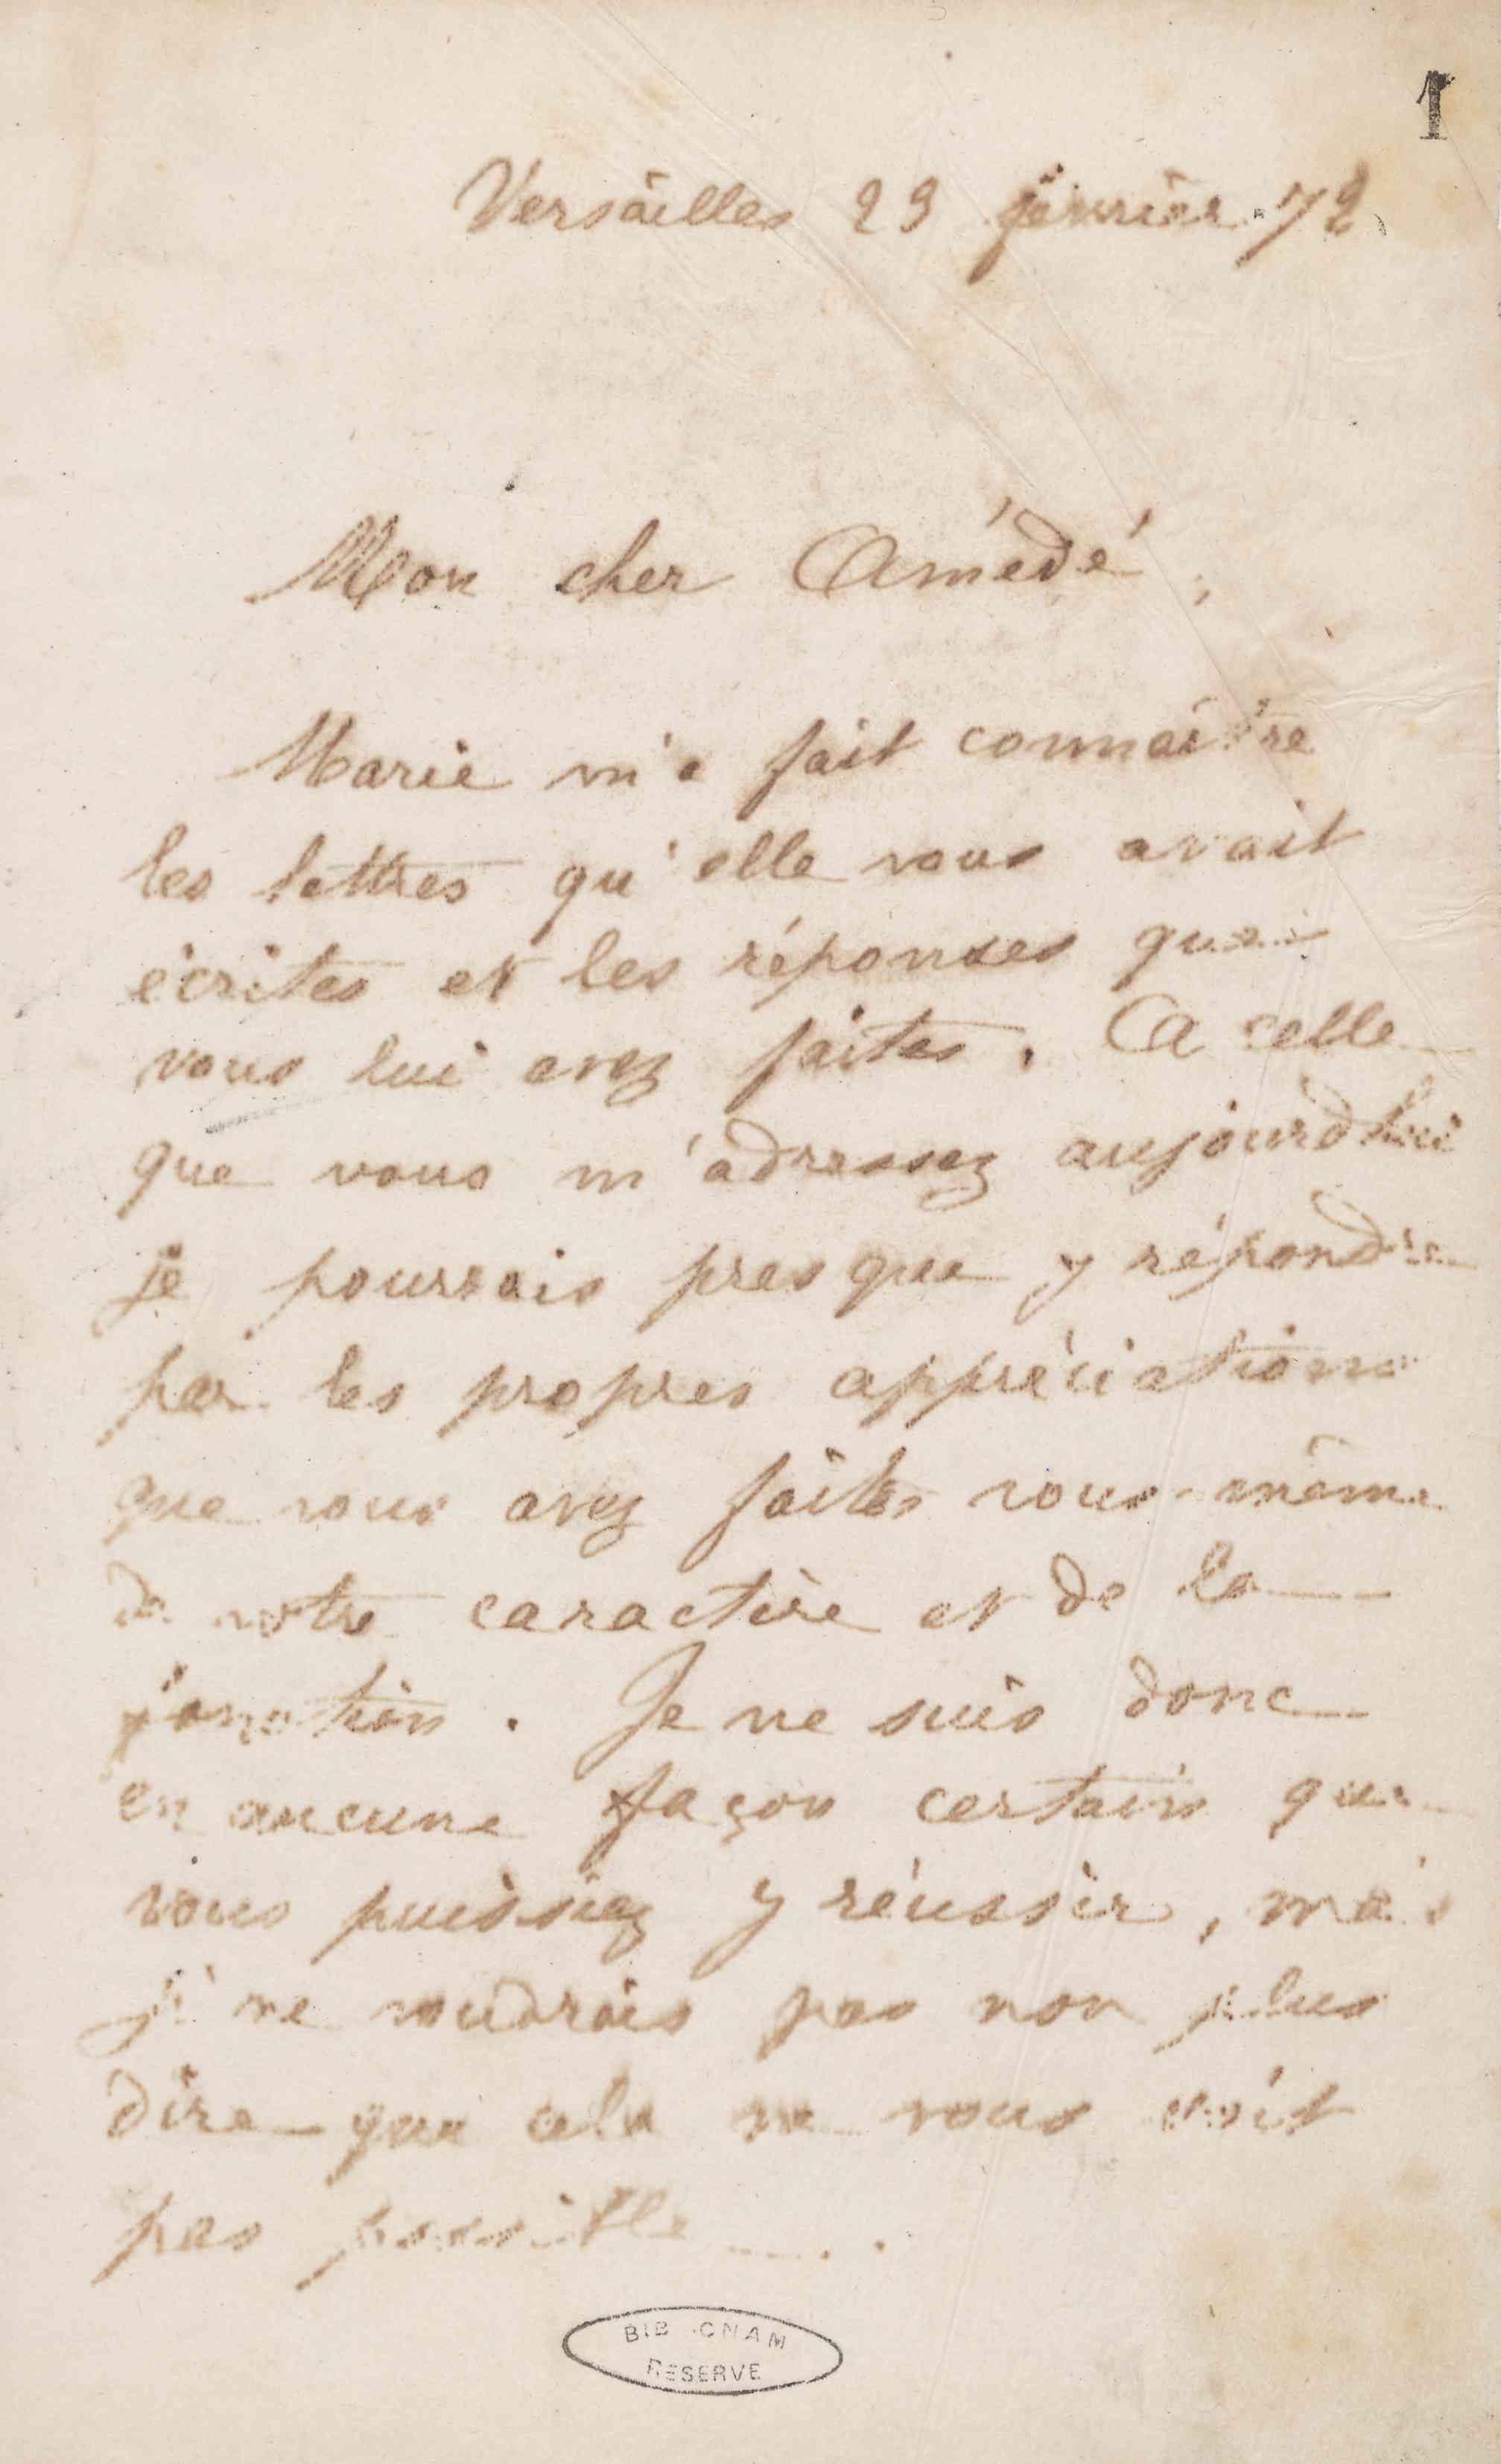 1
Versailles 29 janvier 72
Mon cher Amédé,
Marie m'a fait connaître
les lettres qu'elle vous avait
écrites et les réponses que
vous lui avez faites. A celle
que vous m'adressez aujourd'hui
je pourrais presque y répondre
par les propres appréciations
que vous avez faites vous-même
de votre caractère et de la
Je ne suis donc
en aucune façon certain que
vous puissiez y réussir, mais
je ne voudrais pas non plus
dire que cela ne vous soit
pas possible.
BIB CNAM
RESERVE